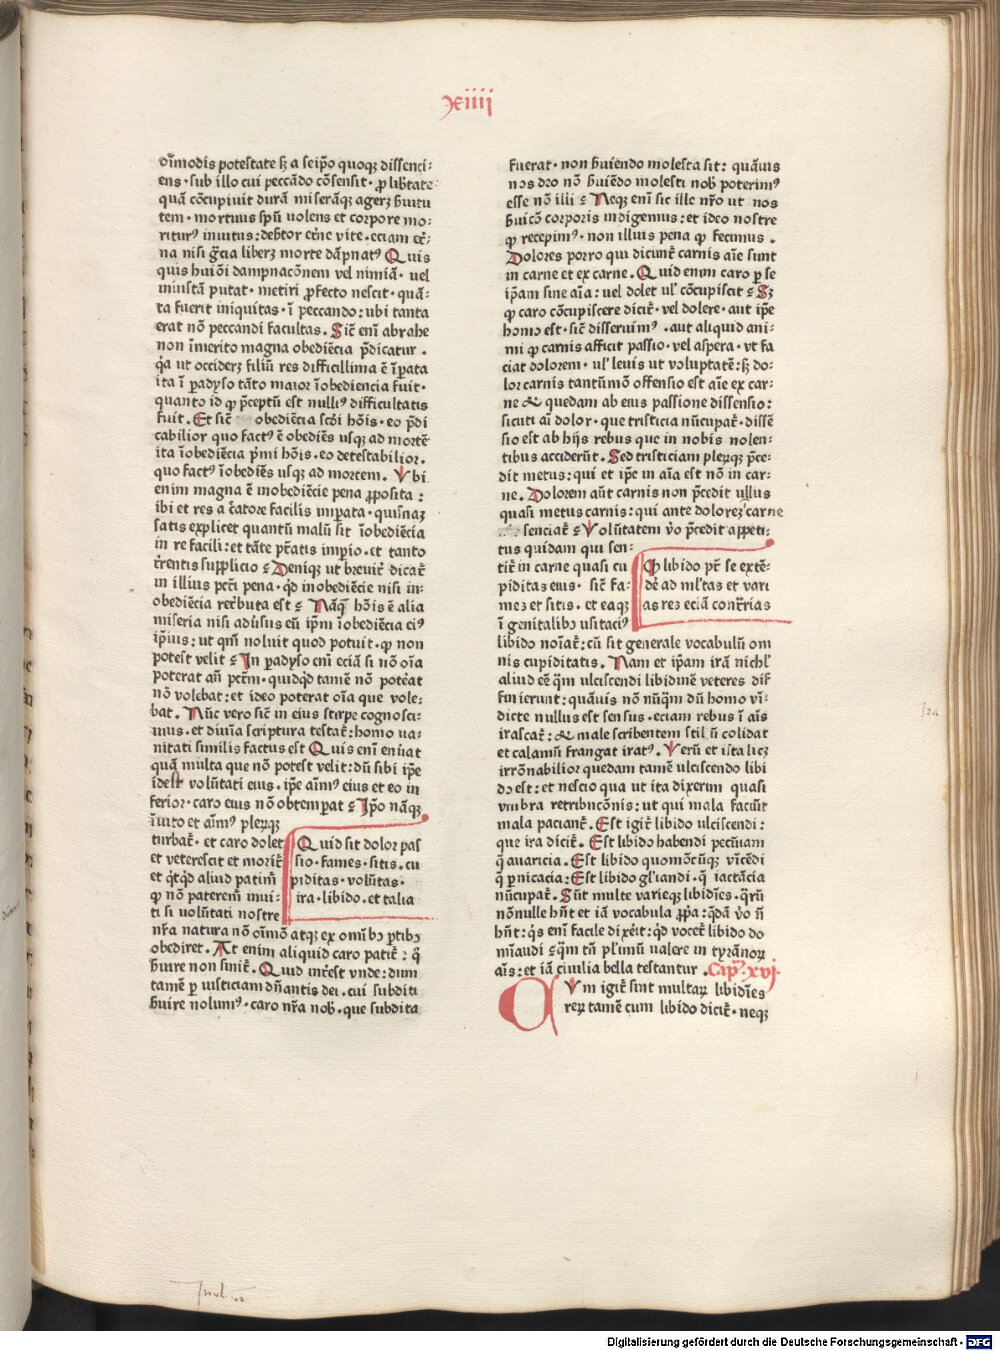 xiiij
dĩmodis potestate sꝫ a seip̃o quoqꝫ dissenci⸗
ens · sub illo cui peccãdo cõsensit · ꝓ lib̾tate
quã cõcupiuit durã miserãqꝫ agerꝫ ẜuitu
tem · mortuus sp̃u volens et corpore mo⸗
riturꝰ inuitus : deb̾tor et̾ne vite · eciam et̾⸗
na nisi gr̃cia liberꝫ morte dãpnatꝰ Quis
quis huiõi dampnacõnem vel nimiã · uel
iniustã putat · metiri ꝓfecto nescit · quã⸗
ta fuerit iniquitas · ĩ peccando : ubi tanta
erat nõ peccandi facultas . Sic̃ enĩ abrahe
non ĩmerito magna obediẽcia p̃dicatur .
q̃a ut occiderꝫ filiũ res difficillima ẽ ĩꝑata
ita ĩ ꝑadyso tãto maior ĩobediencia fuit ·
quanto id ꝙ p̃ceptũ est nulliꝰ difficultatis
fuit . Et sic̃ obediẽcia scḋi hõis · eo p̃di
cabilior quo factꝰ ẽ obediẽs usqꝫ ad mortẽ
ita ĩobediẽcia p̃mi hõis · eo detestabilior .
quo factꝰ ĩobediẽs usqꝫ ad mortem . Vbi
enim magna ẽ inobediẽcie pena ꝓposita :
ibi et res a c̃atore facilis imꝑata · quisnaꝫ
satis explicet quantũ malũ sit ĩobediẽcia
in re facili : et tãte p̃tatis imꝑio · et tanto
t̾rentis supplicio ⁊ Deniqꝫ ut breuit̾ dicat̾
in illius pctĩ pena · qḋ inobediẽcie nisi in⸗
obediẽcia ret̾buta est ⁊ Nãq̃ hõis ẽ alia
miseria nisi adũsus eũ ip̃m ĩobediẽcia eiꝰ
ip̃ius : ut qm̃ noluit quod potuit · ꝙ non
potest velit ⁊ In ꝑadyso em̃ eciã si nõ oĩa
poterat añ pctm̃ · quidqḋ tamẽ nõ potẽat
nõ volebat : et ideo poterat oĩa que vole⸗
bat . Nũc vero sic̃ in eius stirpe cognosci⸗
mus · et diuĩa scriptura testat̾ : homo ua⸗
nitati similis factus est Quis enĩ enũat
quã multa que nõ potest velit : dũ sibi ip̃e
idest volũtati eius · ip̃e aĩmꝰ eius et eo in
ferior · caro eius nõ obtemꝑat ⁊ Ip̃o nãqꝫ
ĩuito et aĩmꝰ pleꝝqꝫ
turbat̾ · et caro dolet
et veterescit et morit̾
et q̃tq̃d aliud patim̃
ꝙ nõ paterem̃ inui⸗
ti si volũtati nostre
Quid sit dolor pas
sio · fames · sitis · cu
piditas · volũtas ·
ira · libido · et talia
nr̃a natura nõ oĩmõ atqꝫ ex omĩbꝫ ꝑtibꝫ
obediret . At enim aliquid caro patit̾ : q̃
ẜuire non sinit̾ . Quid int̾est vnde : dum
tamẽ ꝑ iusticiam dñantis dei · cui subditi
ẜuire nolumꝰ · caro nr̃a nob̾ · que subdita
fuerat · non ẜuiendo molesta sit : quãuis
nos deo nõ ẜuiẽdo molesti nob̾ poterimꝰ
esse nõ illi ⁊ Neqꝫ enĩ sic ille nr̃o ut nos
ẜuicõ corporis indigemus : et ideo nostre
ꝙ recepimꝰ · non illius pena ꝙ fecimus .
Dolores porro qui dicunt̾ carnis aĩe sunt
in carne et ex carne . Quid enim caro ꝑ se
ip̃am sine aĩa : uel dolet ul̾ cõcupiscit ⁊ Sꝫ
ꝙ caro cõcupiscere dicit̾ · vel dolere · aut ip̃e
homo est · sic̃ disseruimꝰ . aut aliquid ani⸗
mi ꝙ carnis afficit passio · vel aspera · vt fa
ciat dolorem · ul̾ leuis ut voluptatẽ : sꝫ do⸗
lor carnis tantũmõ offensio est aĩe ex car⸗
ne & quedam ab eius passione dissensio :
sicuti aĩ dolor · que tristicia nũcupat̾ · dissẽ
sio est ab hijs rebus que in nobis nolen⸗
tibus acciderũt . Sed tristiciam pleꝝqꝫ p̃ce⸗
dit metus : qui et ip̃e in aĩa est nõ in car⸗
ne . Dolorem aũt carnis non p̃cedit ullus
quasi metus carnis : qui ante dolorẽ carne
senciat̾ ⁊ Volũtatem ṽo p̃cedit appeti⸗
tus quidam qui sen⸗
tit̾ in carne quasi cu
piditas eius · sic̃ fa⸗
meꝫ et sitis · et eaqꝫ
ĩ genitalibꝫ usitaciꝰ
Q libido pr̃ se extẽ⸗
dẽ ad ml̾tas et vari
as res eciã cont̾rias
libido noĩat̾ : cũ sit generale vocabulũ om
nis cupiditatis . Nam et ip̃am irã nichl̾
aliud eẽ q̃m ulciscendi libidinẽ veteres dif
finierunt : quãuis nõ nũq̃m dũ homo vĩ⸗
dicte nullus est sensus · eciam rebus ĩ aĩs
irascat̾ : & male scribentem stilũ colidat
et calamũ frangat iratꝰ . Verũ et ista licꝫ
irrõnabilior quedam tamẽ ulciscendo libi
do est : et nescio qua ut ita dixerim quasi
vmbra retribucõnis : ut qui mala faciũt
mala paciant̾ . Est igit̾ libido ulciscendi :
que ira dicit̾ . Est libido habendi pecũiam
q̃ auaricia . Est libido quomõcũqꝫ vĩcẽdi
q̃ ꝑnicacia : Est libido gl̾iandi · q̃ iactãcia
nũcupat̾ . Sũt multe varieqꝫ libidĩes · q̃rũ
nõnulle hñt et iã vocabula ꝓp̃a : q̃dã ṽo ñ
hñt : q̃s enĩ facile dix̾it : qḋ vocet̾ libido do
mĩandi ⁊ q̃m tñ pl̾imũ ualere in tyrãnoꝝ
aĩs : et iã ciuilia bella testantur . Cap̃ xvj
CVm igit̾ sint multaꝝ libidĩes
reꝝ tamẽ cum libido dicit̾ · neqꝫ
Digitalisierung gefördert durch die Deutsche Forschungsgemeinschaft - DFG